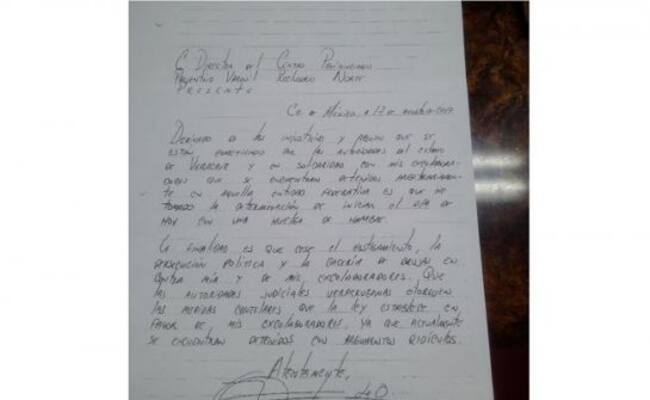 C. Director del Centro Penitenciario
Preventivo Varonil Reclusorio Norte
Presente
Cd. de México a 17 de
Derivado de las injusticias y abusos que se
están cometiendo por las autoridades del Estado
de Veracruz y en solidaridad con mis excolaboradores
que se encuentran detenidos
en aquella entidad federativa es que he
tomado la determinación de iniciar el día de
hoy con una huelga de hambre.
La finalidad es que cese el hostigamiento, la
persecución política y la cacería de brujas en
contra mía y de mis excolaboradores. Que
las autoridades judiciales veracruzanas otorguen
las medidas cautelares que la ley establece en
favor de mis excolaboradores, ya que actualmente
se encuentran detenidos con argumentos ridículos.
Atentamente,